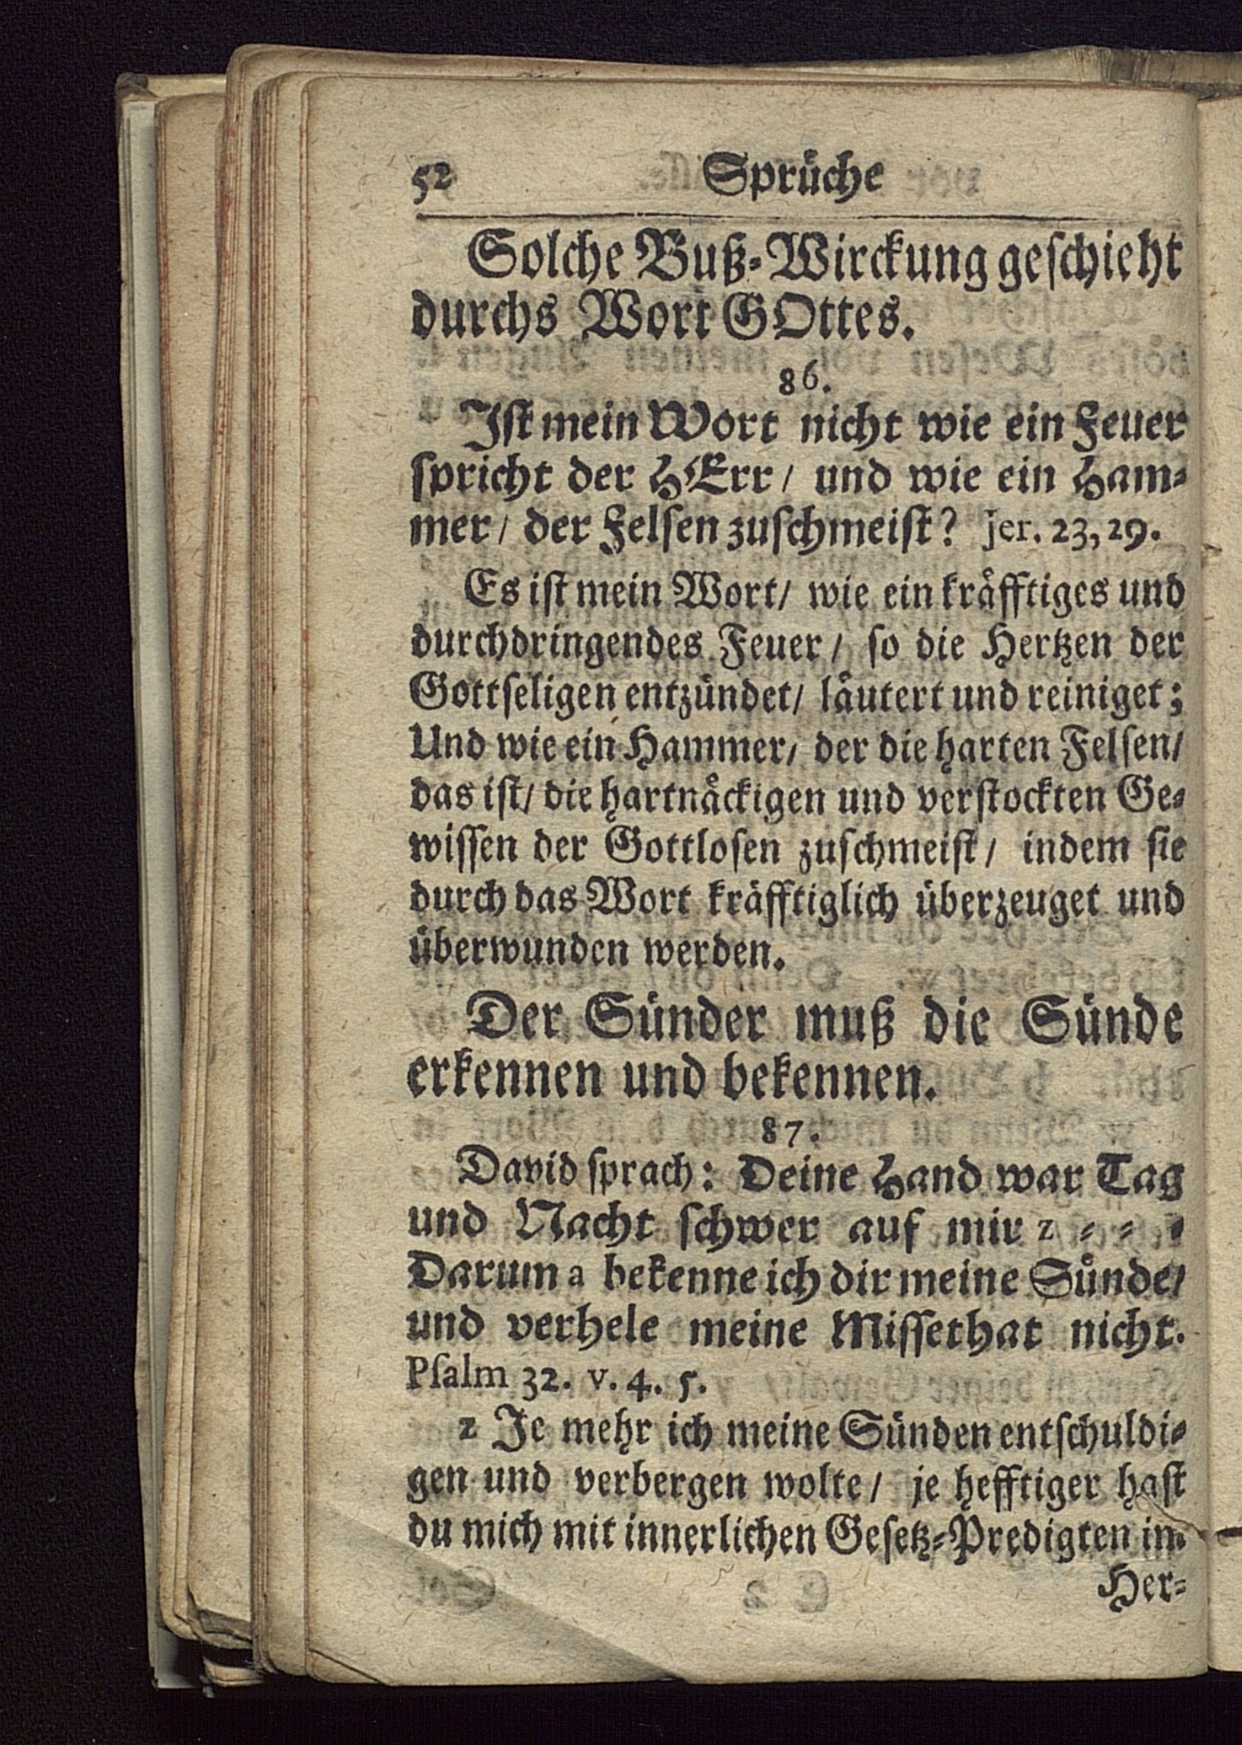 52 Sprüche
Solche Buß-Wirckung geschieht
durchs Wort GOttes.
86.
Ist mein Wort nicht wie ein Feuer
spricht der HErr/ und wie ein Ham-
mer/ der Felsen zuschmeist? Jer. 23, 29.
Es ist mein Wort/ wie ein kräfftiges und
durchdringendes Feuer/ so die Hertzen der
Gottseligen entzündet/ läutert und reiniget;
Und wie ein Hammer/ der die harten Felsen/
das ist/ die hartnäckigen und verstockten Ge-
wissen der Gottlosen zuschmeist/ indem sie
durch das Wort kräfftiglich überzeuget und
überwunden werden.
Der Sünder muß die Sünde
erkennen und bekennen.
87.
David sprach: Deine Hand war Tag
und Nacht schwer auf mir z - - -
Darum a bekenne ich dir meine Sünde/
und verhele meine Missethat nicht.
Psalm 32. v. 4. 5.
z Je mehr ich meine Sünden entschuldi-
gen und verbergen wolte/ je hefftiger hast
du mich mit innerlichen Gesetz-Predigten im
Her-